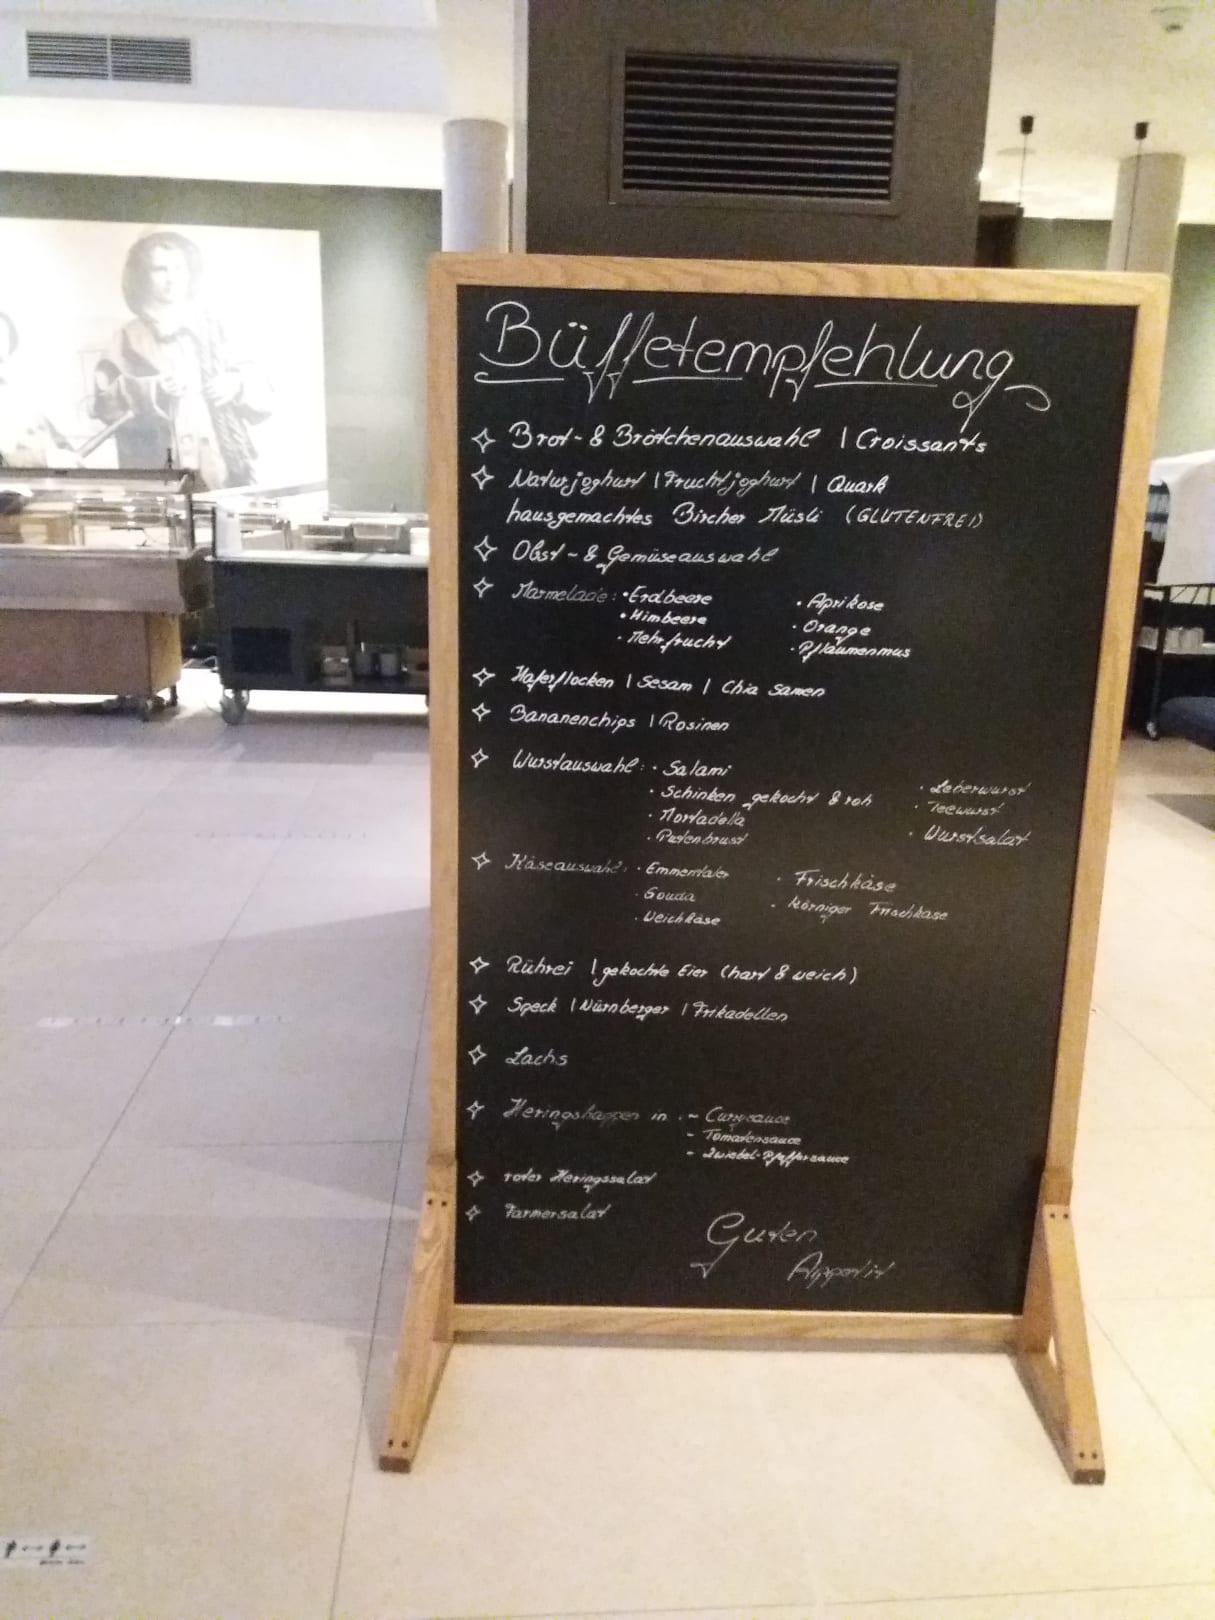 Büffetempfehlung
Brot- & Brötchenauswahl | Croissants
Naturjoghurt | Fruchtjoghurt | Quark
hausgemachtes Bircher Müsli (GLUTENFREI)
Obst- & Gemüseauswahl
Marmelade: • Erdbeere • Aprikose
• Himbeere • Orange
• Mehrfrucht • Pflaumenmus
Haferflocken | Sesam | Chia Samen
Bananenchips | Rosinen
Wurstauswahl: • Salami • Leberwurst
• Schinken gekocht & roh • Teewurst
• Mortadella • Wurstsalat
• Putenbrust
Käseauswahl: • Emmentaler • Frischkäse
• Gouda • körniger Frischkäse
• Weichkäse
Rührei | gekochte Eier (hart & weich)
Speck | Nürnberger | Frikadellen
Lachs
Heringshappen in - Currysauce
- Tomatensauce
- Zwiebel-Pfeffersauce
roter Heringssalat
Farmersalat
Guten
Appetit